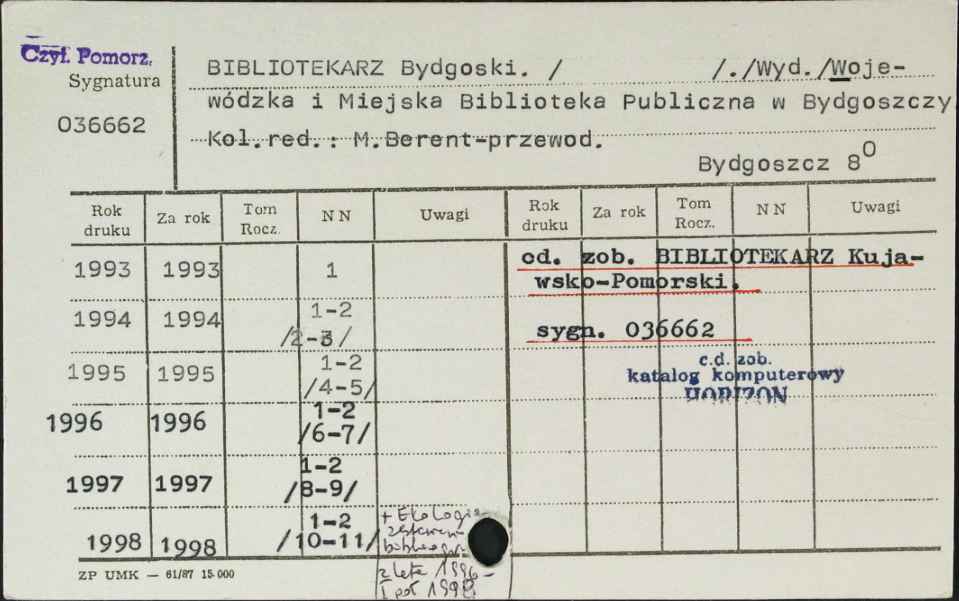 Czyt. Pomorz.
Sygnatura
036662
BIBLIOTEKARZ Bydgoski. / /./Wyd./Woje-
wódzka i Miejska Biblioteka Publiczna w Bydgoszczy
Kol.red.: M.Berent-przewod.
Bydgoszcz 8⁰
Rok druku Za rok Tom Rocz. NN Uwagi Rok druku Za rok Tom Rocz. NN Uwagi
1993 1993 1
1994 1994 1-2
/2-3/
1995 1995 1-2
/4-5/
1996 1996 1-2
/6-7/
1997 1997 1-2
/8-9/
1998 1998 1-2
/10-11/
+ Ekologia
z lata 1996-
I poł 1998
od. zob. BIBLIOTEKARZ Kuja-
wsko-Pomorski.
sygn. 036662
c.d. zob.
katalog komputerowy
HORIZON
ZP UMK — 61/87 15.000